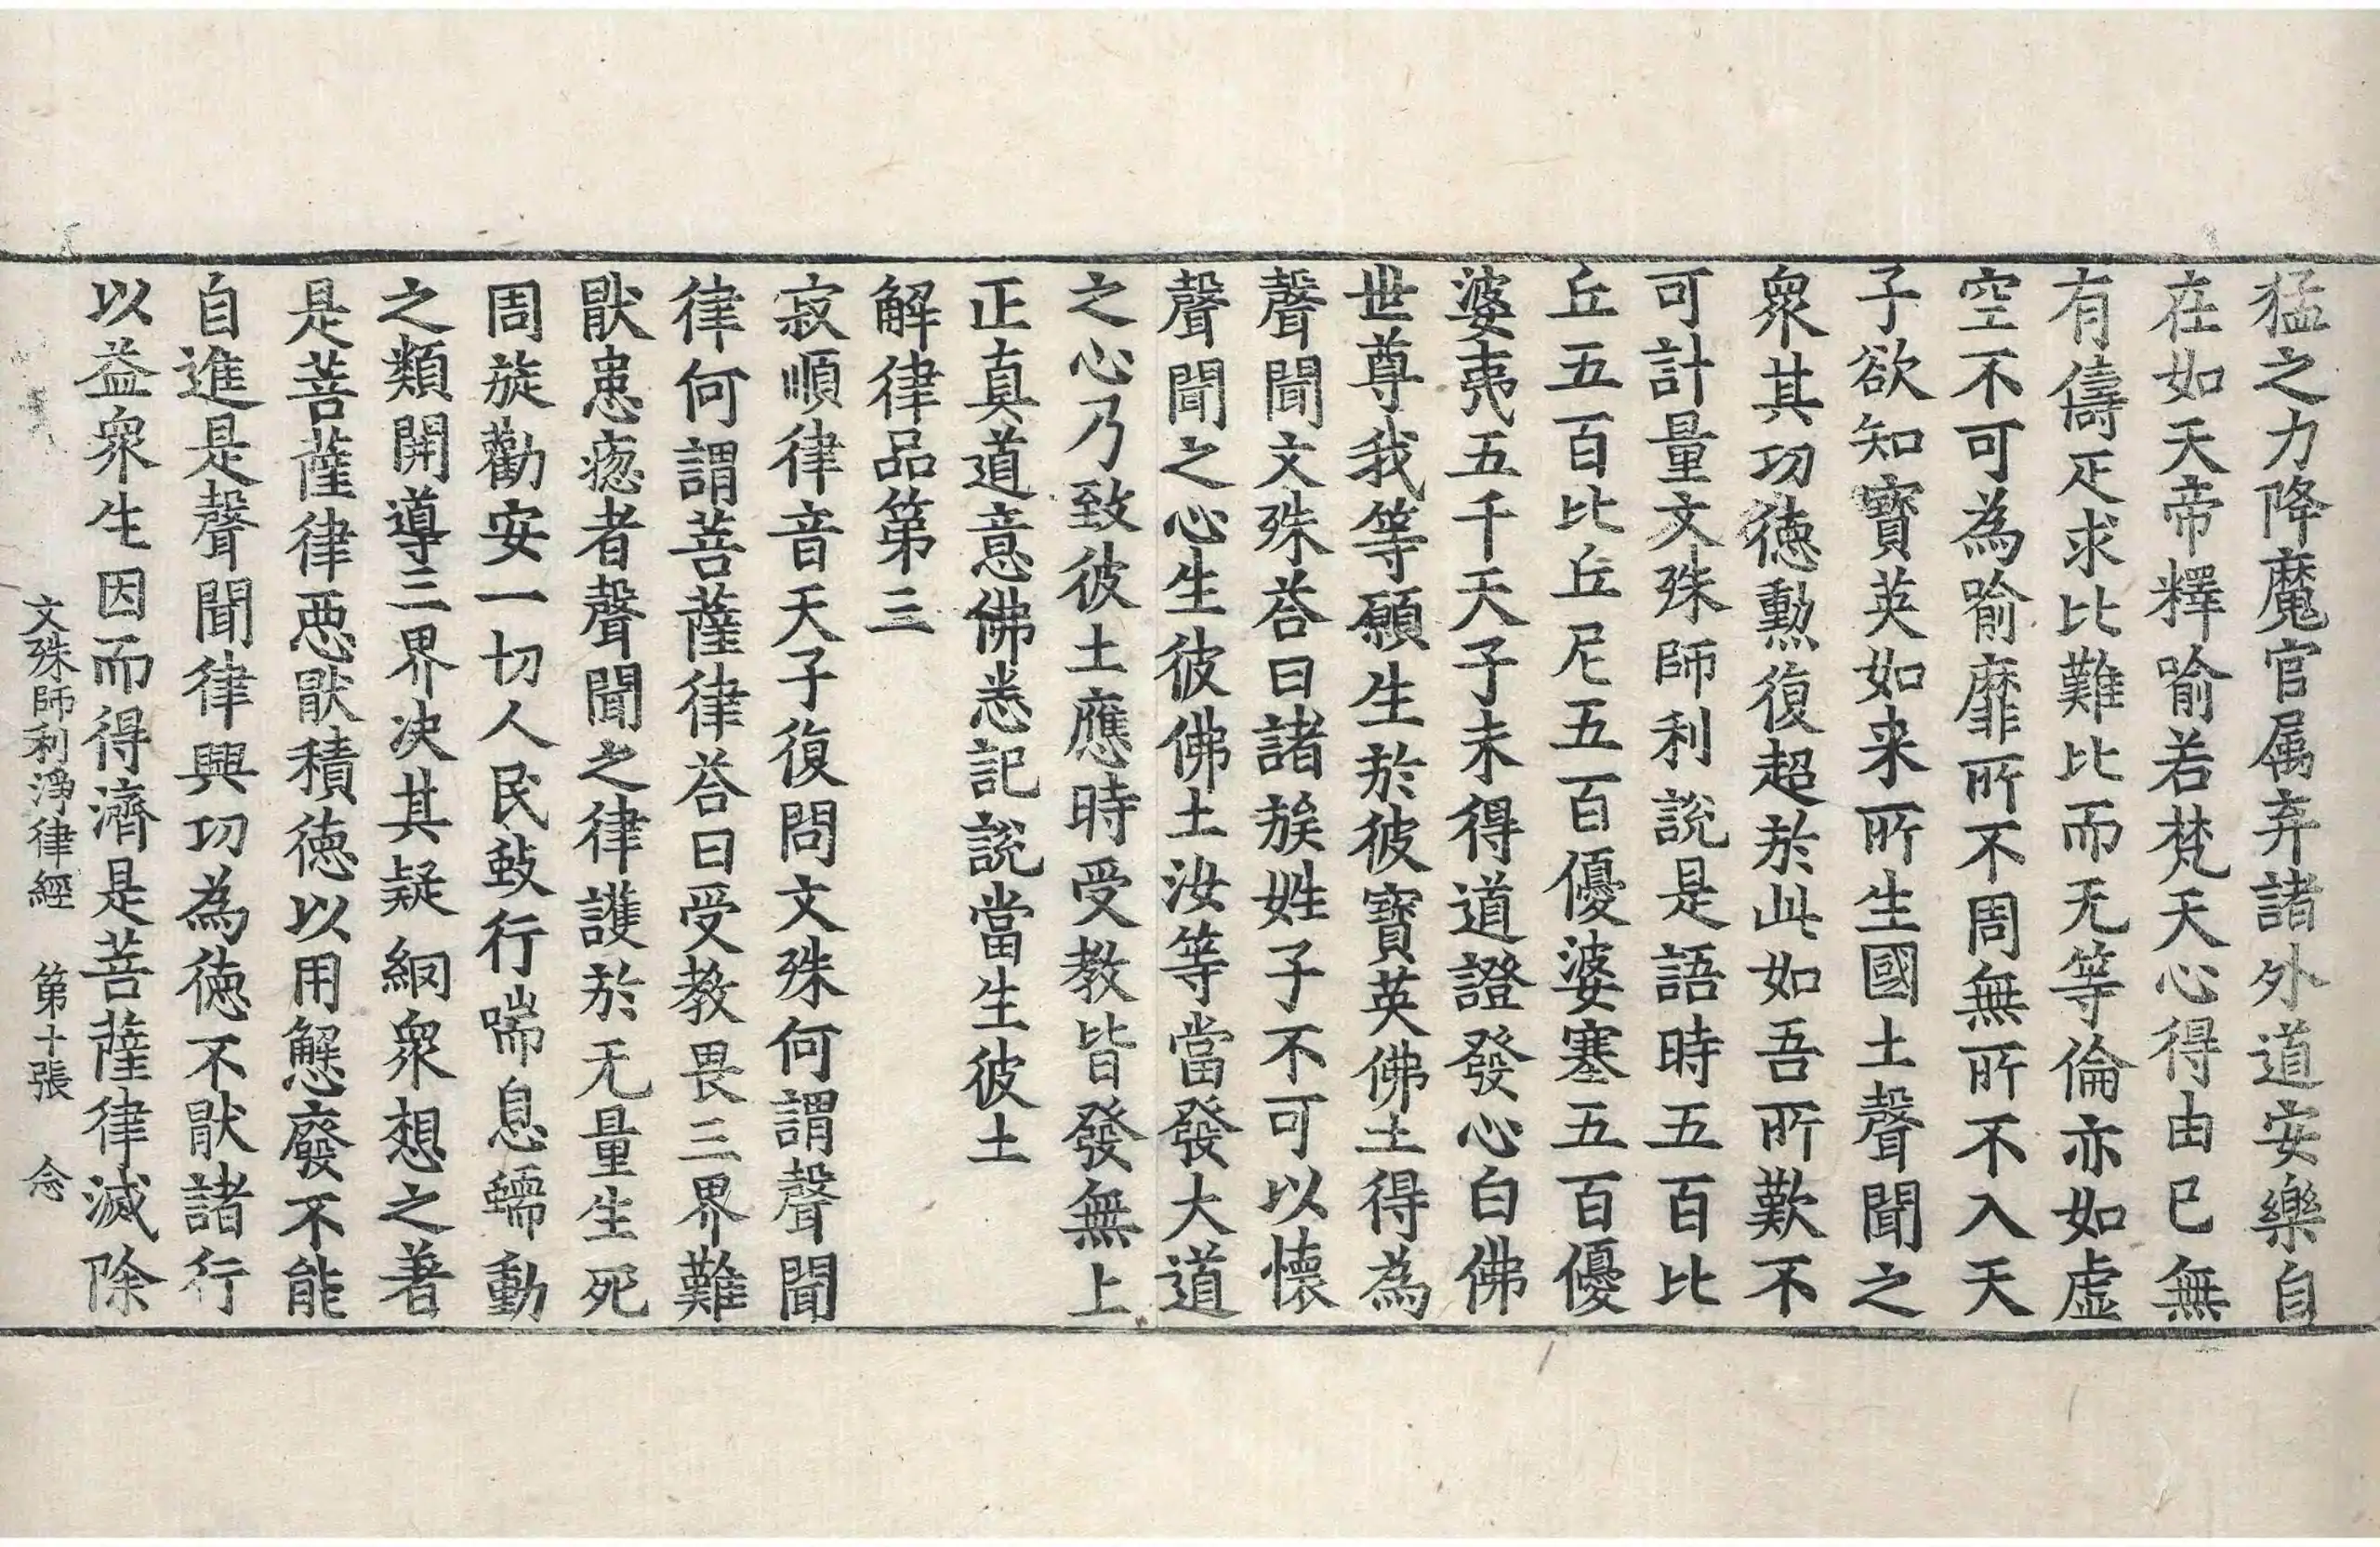 猛之力降魔官属弃諸外道安樂自
在如天帝釋喻若梵天心得由已無
有儔疋求比難比而无等倫亦如虛
空不可為喻靡所不周無所不入天
子欲知寶英如来所生國土聲聞之
衆其功德勲復超於此如吾所歎不
可計量文殊師利說是語時五百比
丘五百比丘尼五百優婆塞五百優
婆夷五千天子未得道證發心白佛
世尊我等願生於彼寶英佛土得為
聲聞文殊荅曰諸族姓子不可以懷
聲聞之心生彼佛土汝等當發大道
之心乃致彼土應時受教皆發無上
正真道意佛悉記說當生彼土
解律品第三
寂順律音天子復問文殊何謂聲聞
律何謂菩薩律荅曰受教畏三界難
猒患㥽者聲聞之律護於无量生死
周旋勸安一切人民蚑行喘息蠕動
之類開導三界决其疑網衆想之著
是菩薩律惡猒積德以用懈廢不能
自進是聲聞律興功為德不猒諸行
以益衆生因而得濟是菩薩律滅除
文殊師利淨律經 第十張 念